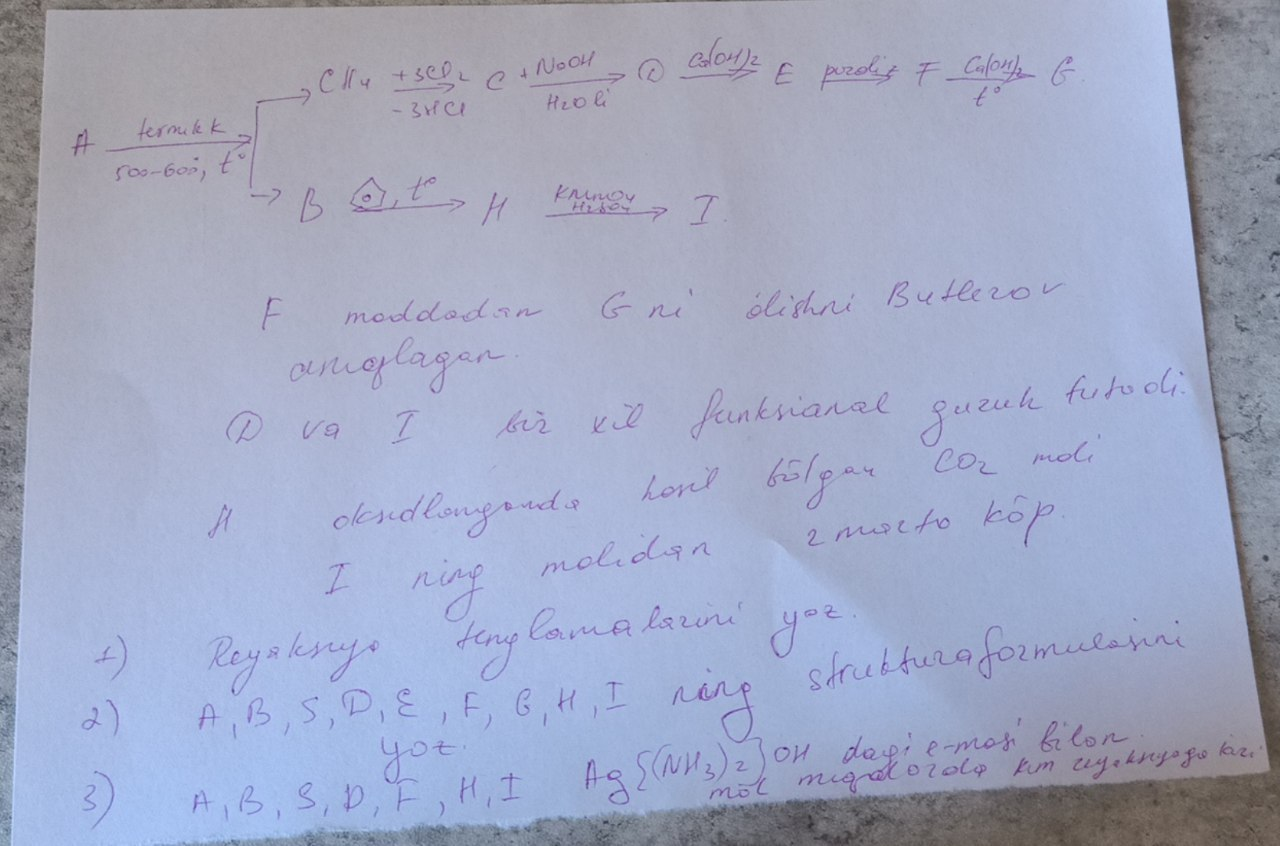 CH4 +3Cl2 C +NaOH D Ca(OH)2 E piroliz F Ca(OH)2 G
-3HCl H2Oli t°
A termikk
500-600, t°
B , t° H KMnO4 I
H2SO4
F moddadan G ni olishni Butlerov
aniqlagan.
D va I bir xil funksianal guruh tutadi.
H oksidlanganda hosil bo'lgan CO2 moli
I ning molidan 2 marta ko'p.
1) Reyaksiya tenglamalarini yoz.
2) A, B, S, D, E, F, G, H, I ning struktura formulasini
yoz.
3) A, B, S, D, F, H, I Ag{(NH3)2}OH dagi e-masi bilan
mol miqdorda kim